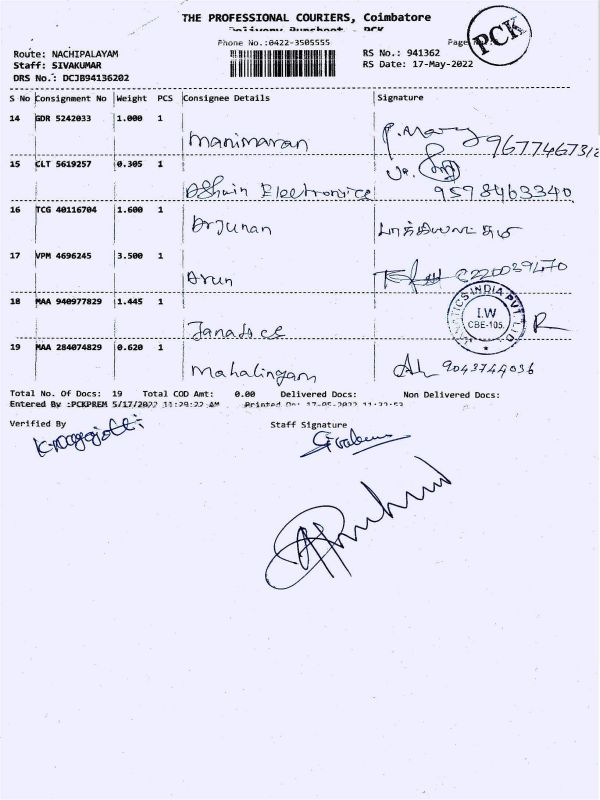 THE PROFESSIONAL COURIERS, Coimbatore
Delivery Runsheet - PCK
Phone No.:0422-3505555
Page
PCK
Route: NACHIPALAYAM
RS No.: 941362
Staff: SIVAKUMAR
RS Date: 17-May-2022
DRS No.: DCJB94136202
S No Consignment No Weight PCS Consignee Details Signature
14 GDR 5242033 1.000 1
Manimaran P. Mary 9677467312
15 CLT 5619257 0.305 1
Ashwin Electronics 9598463340
16 TCG 40116704 1.600 1
Arjunan
17 VPM 4696245 3.500 1
Arun
18 MAA 940977829 1.445 1
INDIA PVT. LTD
I.W
CBE-105.
R
19 MAA 284074829 0.620 1
Mahalingam 9043744036
Total No. Of Docs: 19 Total COD Amt: 0.00 Delivered Docs: Non Delivered Docs:
Entered By :PCKPREM 5/17/2022 11:29:22 AM Printed On: 17-05-2022 11:32:53
Verified By Staff Signature